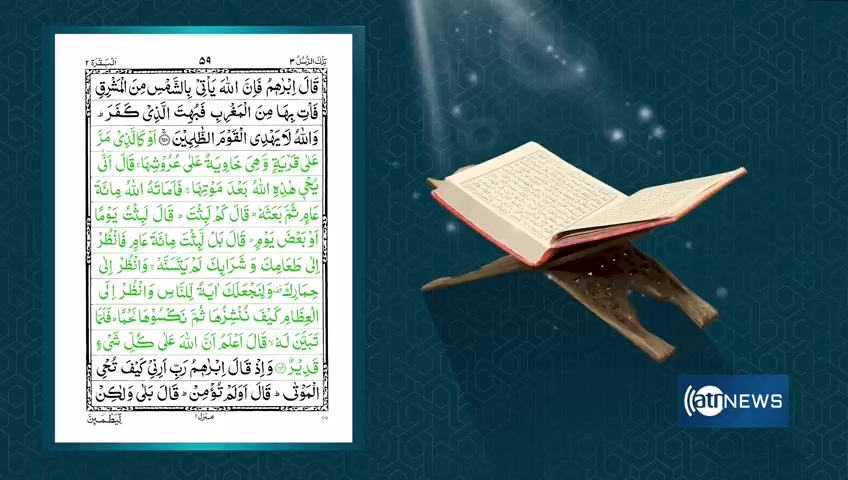 تِلْكَ الرُّسُلُ ٣
٥٩
اَلْبَقَرَة ٢
قَالَ اِبْرٰهِمُ فَاِنَّ اللّٰهَ يَاْتِیْ بِالشَّمْسِ مِنَ الْمَشْرِقِ
فَاْتِ بِهَا مِنَ الْمَغْرِبِ فَبُهِتَ الَّذِیْ كَفَرَ ؕ
وَاللّٰهُ لَا يَهْدِی الْقَوْمَ الظّٰلِمِيْنَ ﴿۲۵۸﴾ اَوْ كَالَّذِیْ مَرَّ
عَلٰی قَرْيَةٍ وَّهِیَ خَاوِيَةٌ عَلٰی عُرُوْشِهَا ۚ قَالَ اَنّٰی
يُحْیٖ هٰذِهِ اللّٰهُ بَعْدَ مَوْتِهَا ۚ فَاَمَاتَهُ اللّٰهُ مِائَةَ
عَامٍ ثُمَّ بَعَثَهٗ ؕ قَالَ كَمْ لَبِثْتَ ؕ قَالَ لَبِثْتُ يَوْمًا
اَوْ بَعْضَ يَوْمٍ ؕ قَالَ بَلْ لَّبِثْتَ مِائَةَ عَامٍ فَانْظُرْ
اِلٰی طَعَامِكَ وَشَرَابِكَ لَمْ يَتَسَنَّهْ ۚ وَانْظُرْ اِلٰی
حِمَارِكَ ۫ وَلِنَجْعَلَكَ اٰيَةً لِّلنَّاسِ وَانْظُرْ اِلَی
الْعِظَامِ كَيْفَ نُنْشِزُهَا ثُمَّ نَكْسُوْهَا لَحْمًا ؕ فَلَمَّا
تَبَيَّنَ لَهٗ ۙ قَالَ اَعْلَمُ اَنَّ اللّٰهَ عَلٰی كُلِّ شَیْءٍ
قَدِيْرٌ ﴿۲۵۹﴾ وَاِذْ قَالَ اِبْرٰهِمُ رَبِّ اَرِنِیْ كَيْفَ تُحْیِ
الْمَوْتٰی ؕ قَالَ اَوَلَمْ تُؤْمِنْ ؕ قَالَ بَلٰی وَلٰكِنْ
منزل ١
لِّيَطْمَىِٕنَّ
atn NEWS